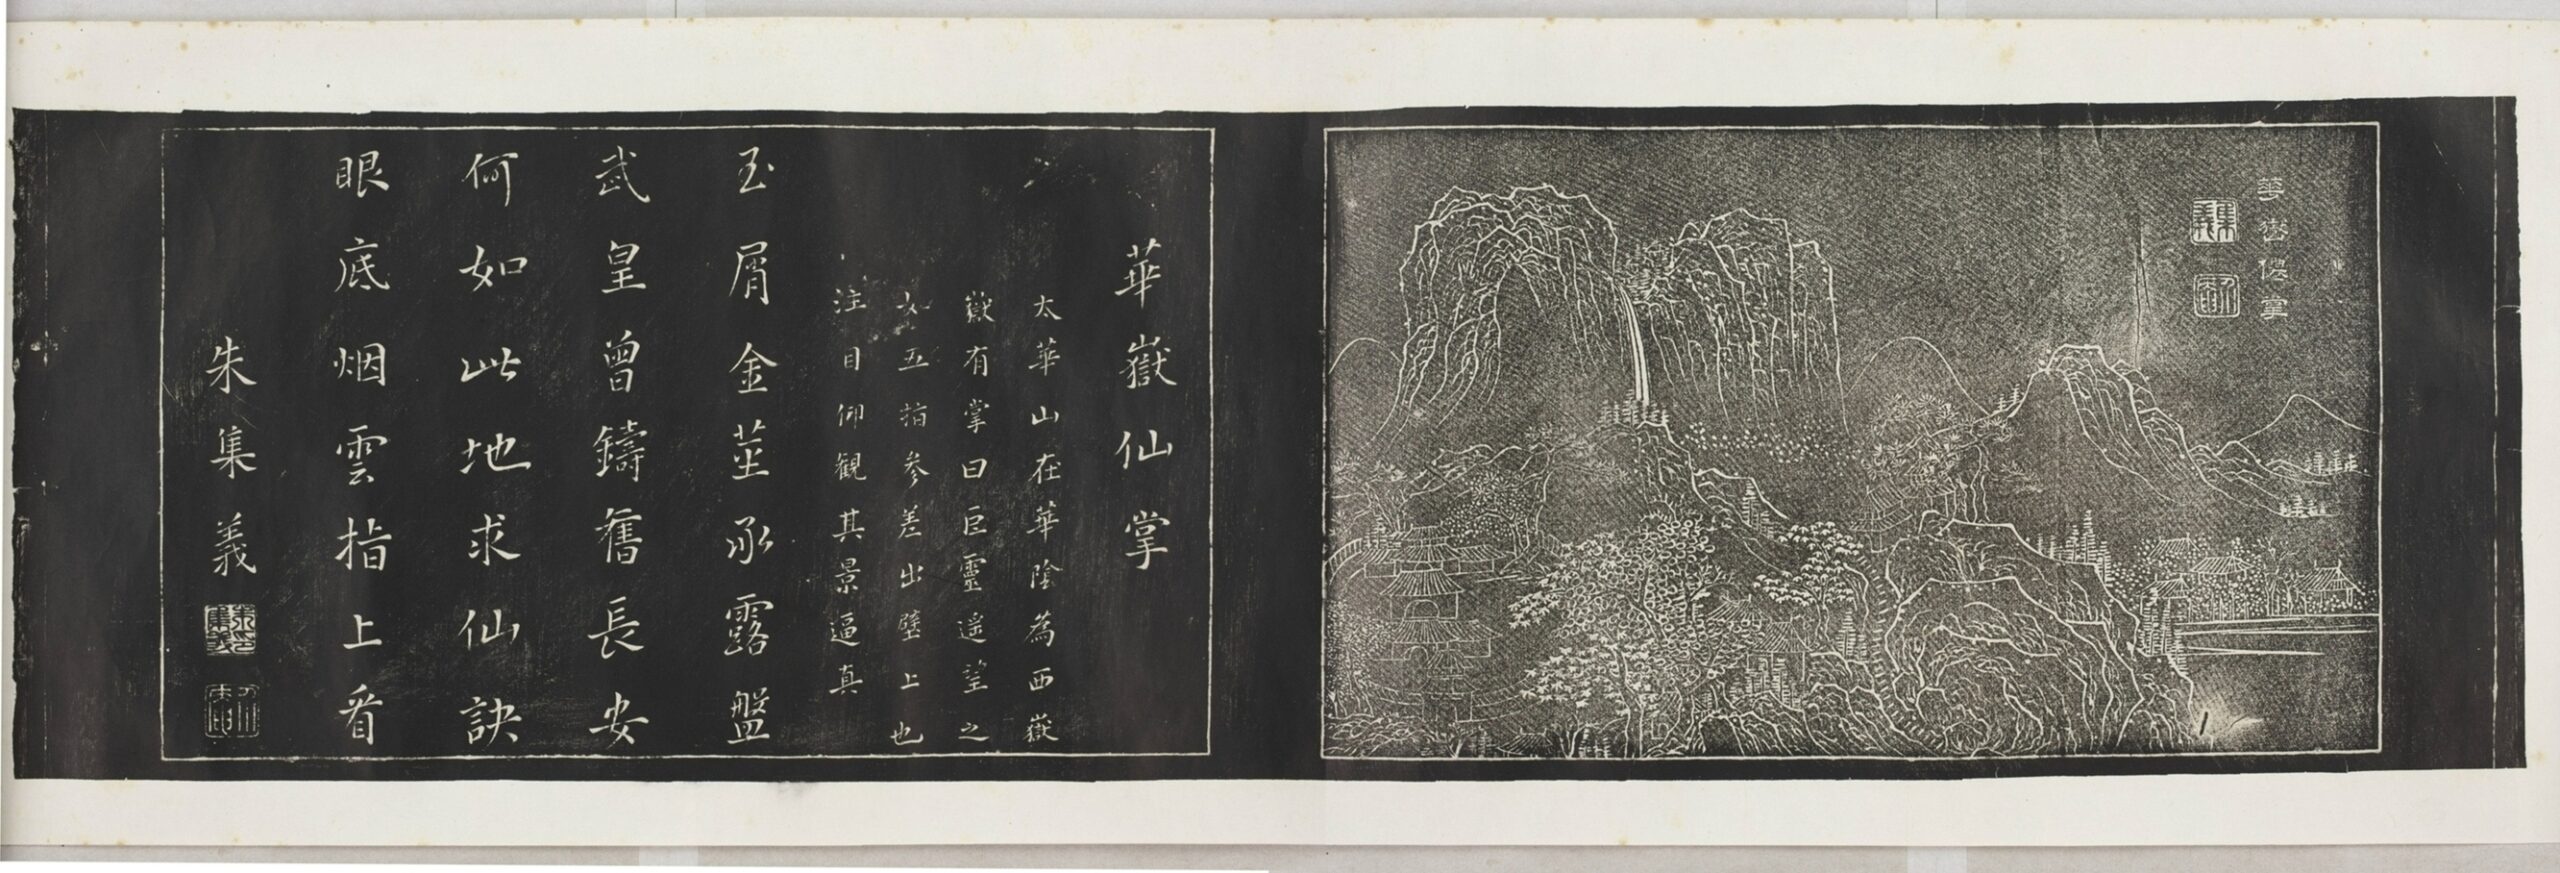 華嶽僊掌
集義
華嶽仙掌
太華山在華陰為西嶽
嶽有掌曰巨靈遥望之
如五指参差出壁上也
注目仰観其景逼真
玉屑金莖承露盤
武皇曾鑄舊長安
何如此地求仙訣
眼底烟雲指上看
朱集義